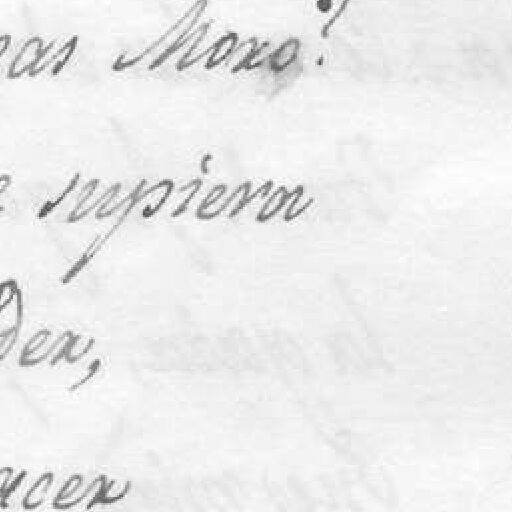 eas Moro!
e supiera
der,
acer